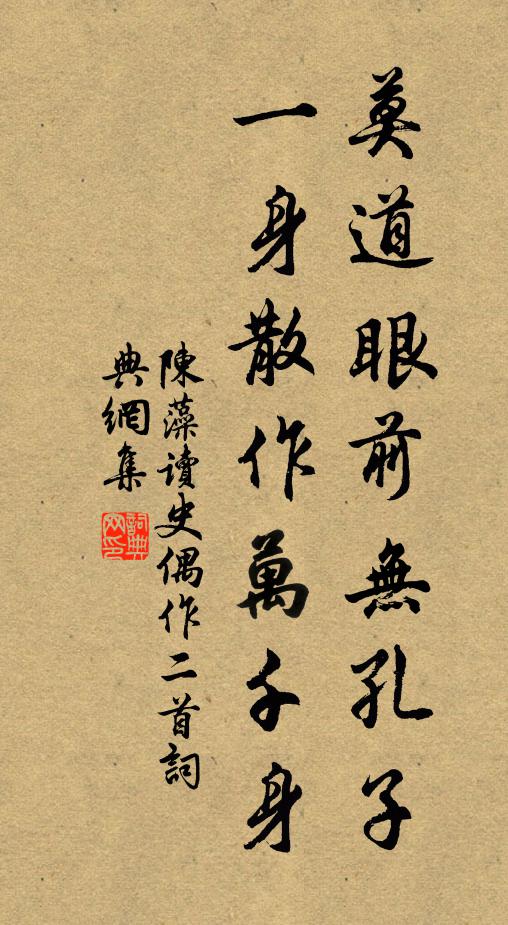 莫道眼前無孔子
一身散作萬千身
陳藻讀史偶作二首詞
典網集
詞典
网印